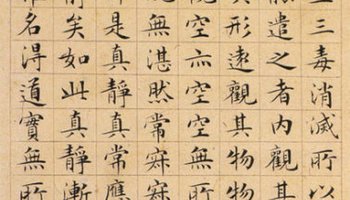 生三毒消滅所以
能遣之者內觀其
其形遠觀其物物
觀空亦空空無所
無湛然常寂寂
是真靜真常應
靜矣如此真靜漸
雖名得道實無所